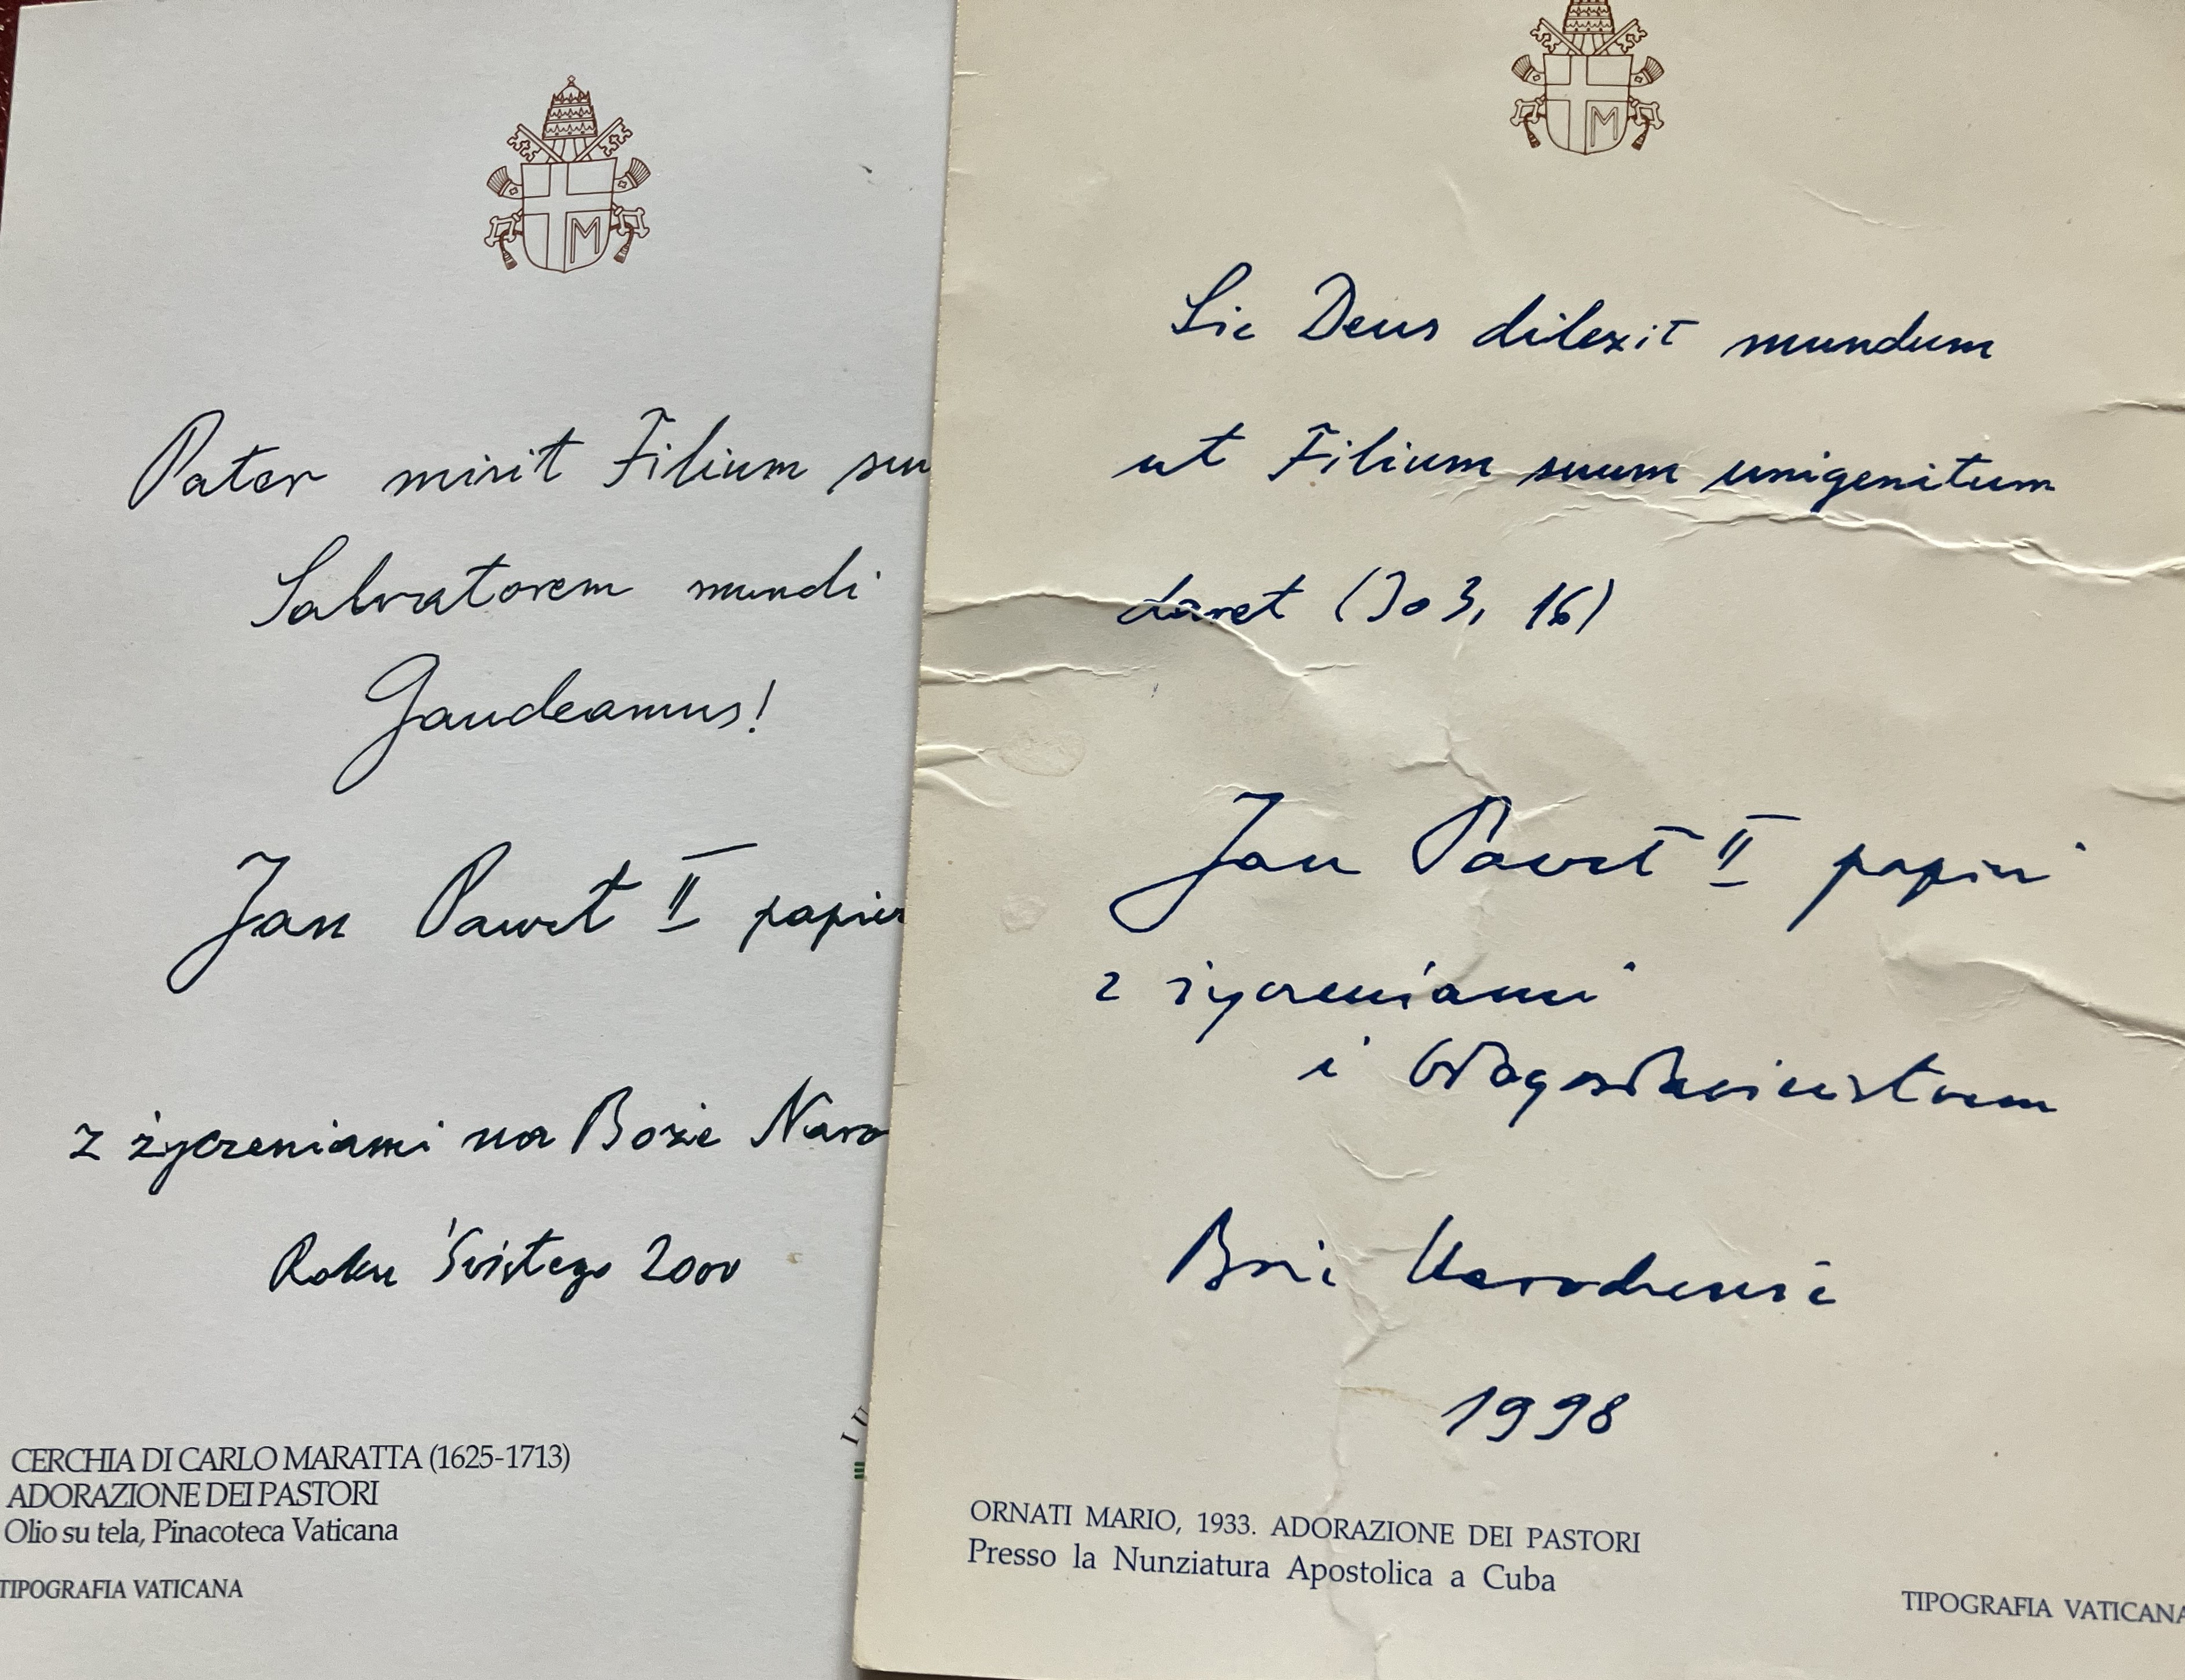 Pater misit Filium suu
Salvatorem mundi
Gaudeamus!
Jan Paweł II papież
z życzeniami na Boże Naro
Roku Świętego 2000
CERCHIA DI CARLO MARATTA (1625-1713)
ADORAZIONE DEI PASTORI
Olio su tela, Pinacoteca Vaticana
TIPOGRAFIA VATICANA
I U
M
Sic Deus dilexit mundum
ut Filium suum unigenitum
daret (Jo 3, 16)
Jan Paweł II papież
z życzeniami
i błogosławieństwem
Boże Narodzenie
1998
ORNATI MARIO, 1933. ADORAZIONE DEI PASTORI
Presso la Nunziatura Apostolica a Cuba
TIPOGRAFIA VATICANA
M